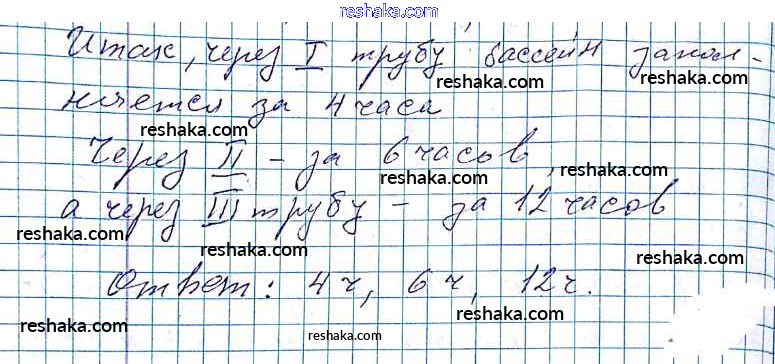 reshaka.com
Итак, через I трубу бассейн запол-
reshaka.com reshaka.com
няется за 4 часа
reshaka.com
Через II - за 6 часов,
reshaka.com reshaka.com
а через III трубу - за 12 часов
reshaka.com reshaka.com reshaka.com
Ответ: 4ч, 6ч, 12ч.
reshaka.com reshaka.com reshaka.com